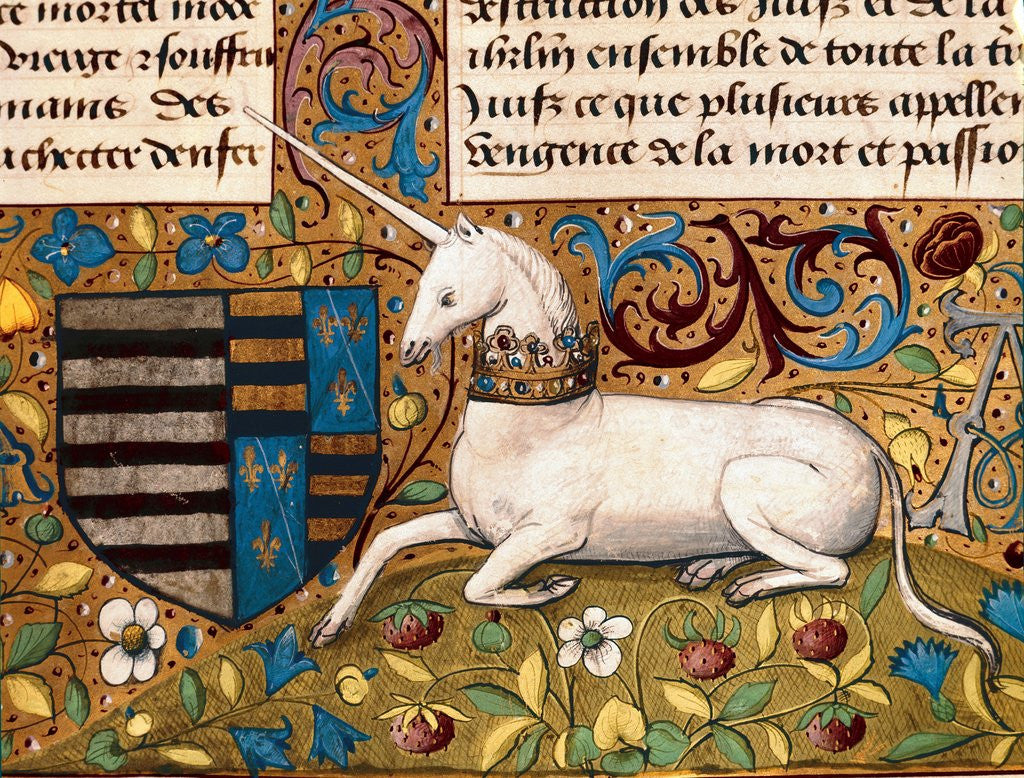 ce mortel mode
vierge ⁊ souffrir
mains des
achecter denfer
destruction des Juifz et de la
ihrlm ensemble de toute la
Juifz ce que plusieurs appellen
Vengence de la mort et passio
A